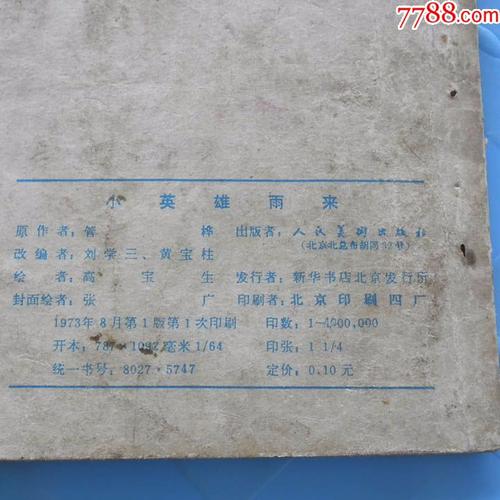 7788.com
小英雄雨来
原作者：管 桦 出版者：人民美术出版社
（北京北总布胡同32号）
改编者：刘学三、黄宝柱
绘 者：高 宝 生 发行者：新华书店北京发行所
封面绘者：张 广 印刷者：北京印刷四厂
1973年8月第1版第1次印刷 印数：1—4000,000
开本：787×1092毫米1/64 印张：1 1/4
统一书号：8027·5747 定价：0.10元